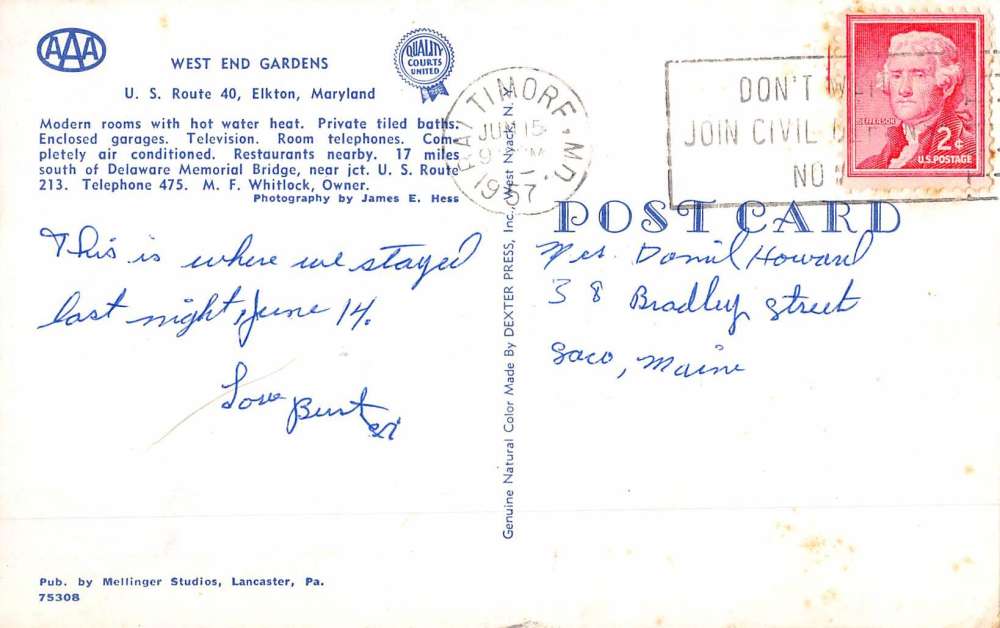 AAA
QUALITY
COURTS
UNITED
WEST END GARDENS
U. S. Route 40, Elkton, Maryland
Modern rooms with hot water heat. Private tiled baths.
Enclosed garages. Television. Room telephones. Com-
pletely air conditioned. Restaurants nearby. 17 miles
south of Delaware Memorial Bridge, near jct. U. S. Route
213. Telephone 475. M. F. Whitlock, Owner.
Photography by James E. Hess
This is where we stayed
last night, June 14.
Love Burt
Pub. by Mellinger Studios, Lancaster, Pa.
75308
Genuine Natural Color Made By DEXTER PRESS, Inc., West Nyack, N. Y.
BALTIMORE, MD.
JUN 15
1957
DON'T
JOIN CIVIL
NO
JEFFERSON
2¢
U.S. POSTAGE
POST CARD
Mrs. Daniel Howard
38 Bradley Street
Saco, Maine